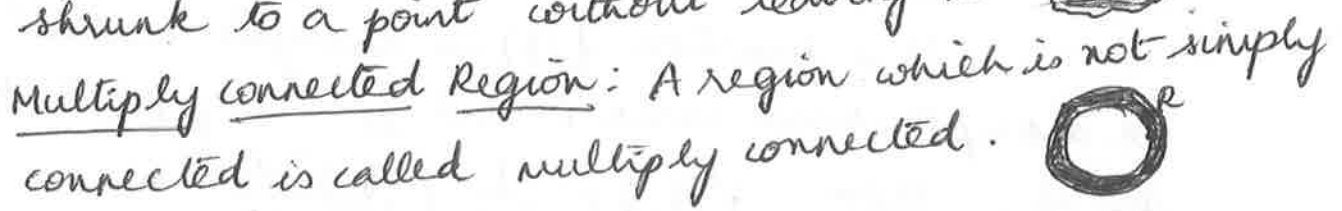 shrunk to a point without
Multiply connected Region: A region which is not simply
connected is called multiply connected. R